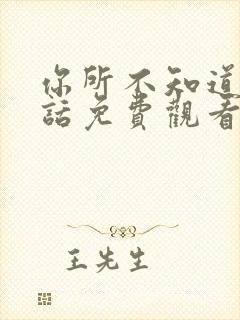 你所不知道
話免費觀看
王先生